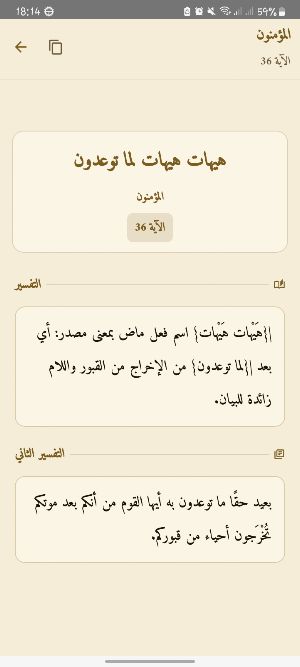 18:14
59%
المؤمنون
الآية 36
هيهات هيهات لما توعدون
المؤمنون
الآية 36
التفسير
|{هَيْهات هَيْهات} اسم فعل ماض بمعنى مصدر: أي
بعد |{لما توعدون} من الإخراج من القبور واللام
زائدة للبيان.
التفسير الثاني
بعيد حقًا ما توعدون به أيها القوم من أنكم بعد موتكم
تُخْرَجون أحياء من قبوركم.